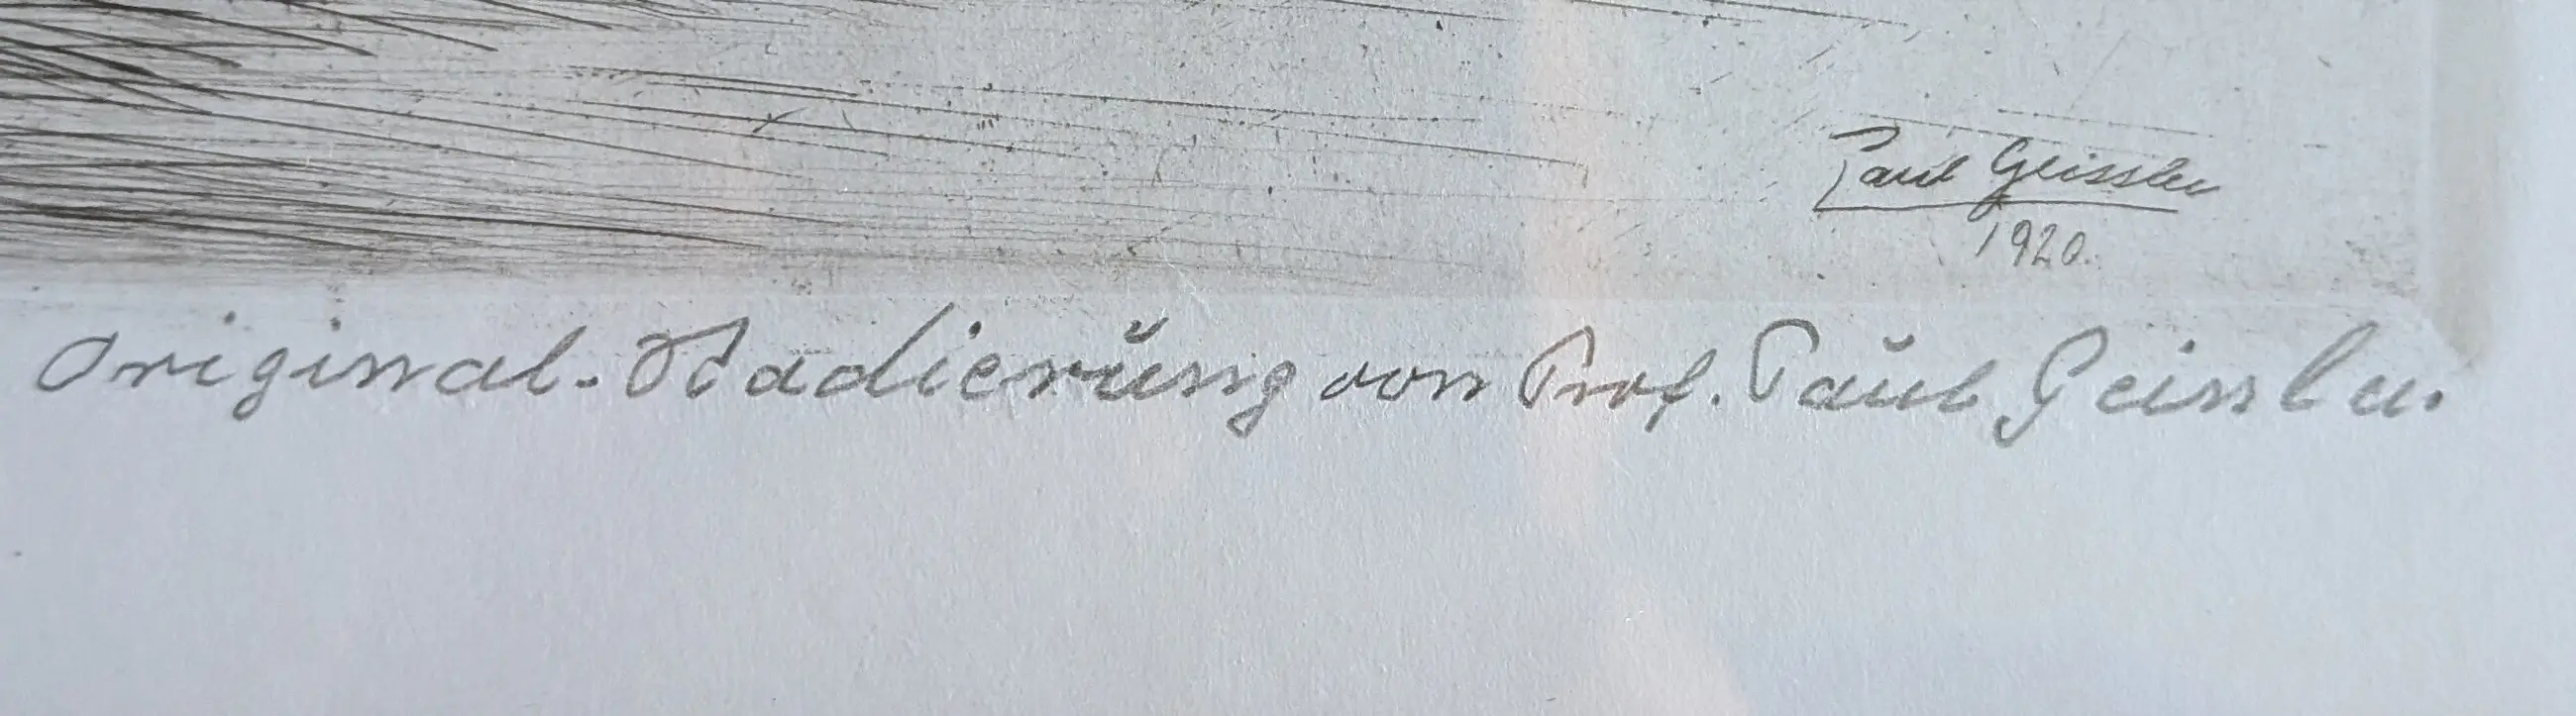 Paul Geissler
1920.
Original-Radierung von Prof. Paul Geissler.